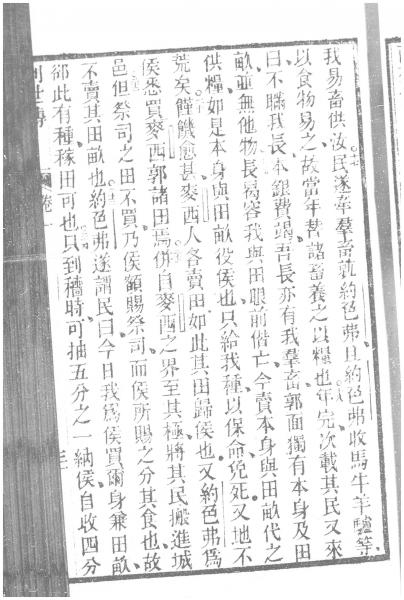 我易畜供汝民遂牽羣畜就約色弗且約色弗收馬牛羊驢等
以食物易之故當年替諸畜養之以糧也年完次載其民又來
曰不瞞我長本銀費竭吾長亦有我羣畜郭面獨有本身及田
畝並無他物長曷容我與田眼前偕亡今賣本身與田畝代之
供糧如是本身與田畝役侯也只給我種以保命免死又地不
荒矣饉饑愈甚麥西人各賣田如此其田歸侯也又約色弗爲
侯悉買麥西郭諸田焉併自麥西之界至其極將其民搬進城
邑但祭司之田不買乃侯額賜祭司而侯所賜之分其食也故
不賣其田畝也約色弗遂謂民曰今日我爲侯買爾身兼田畝
卻此有種稼田可也只到穡時可抽五分之一納侯自收四分
創世傳 卷一